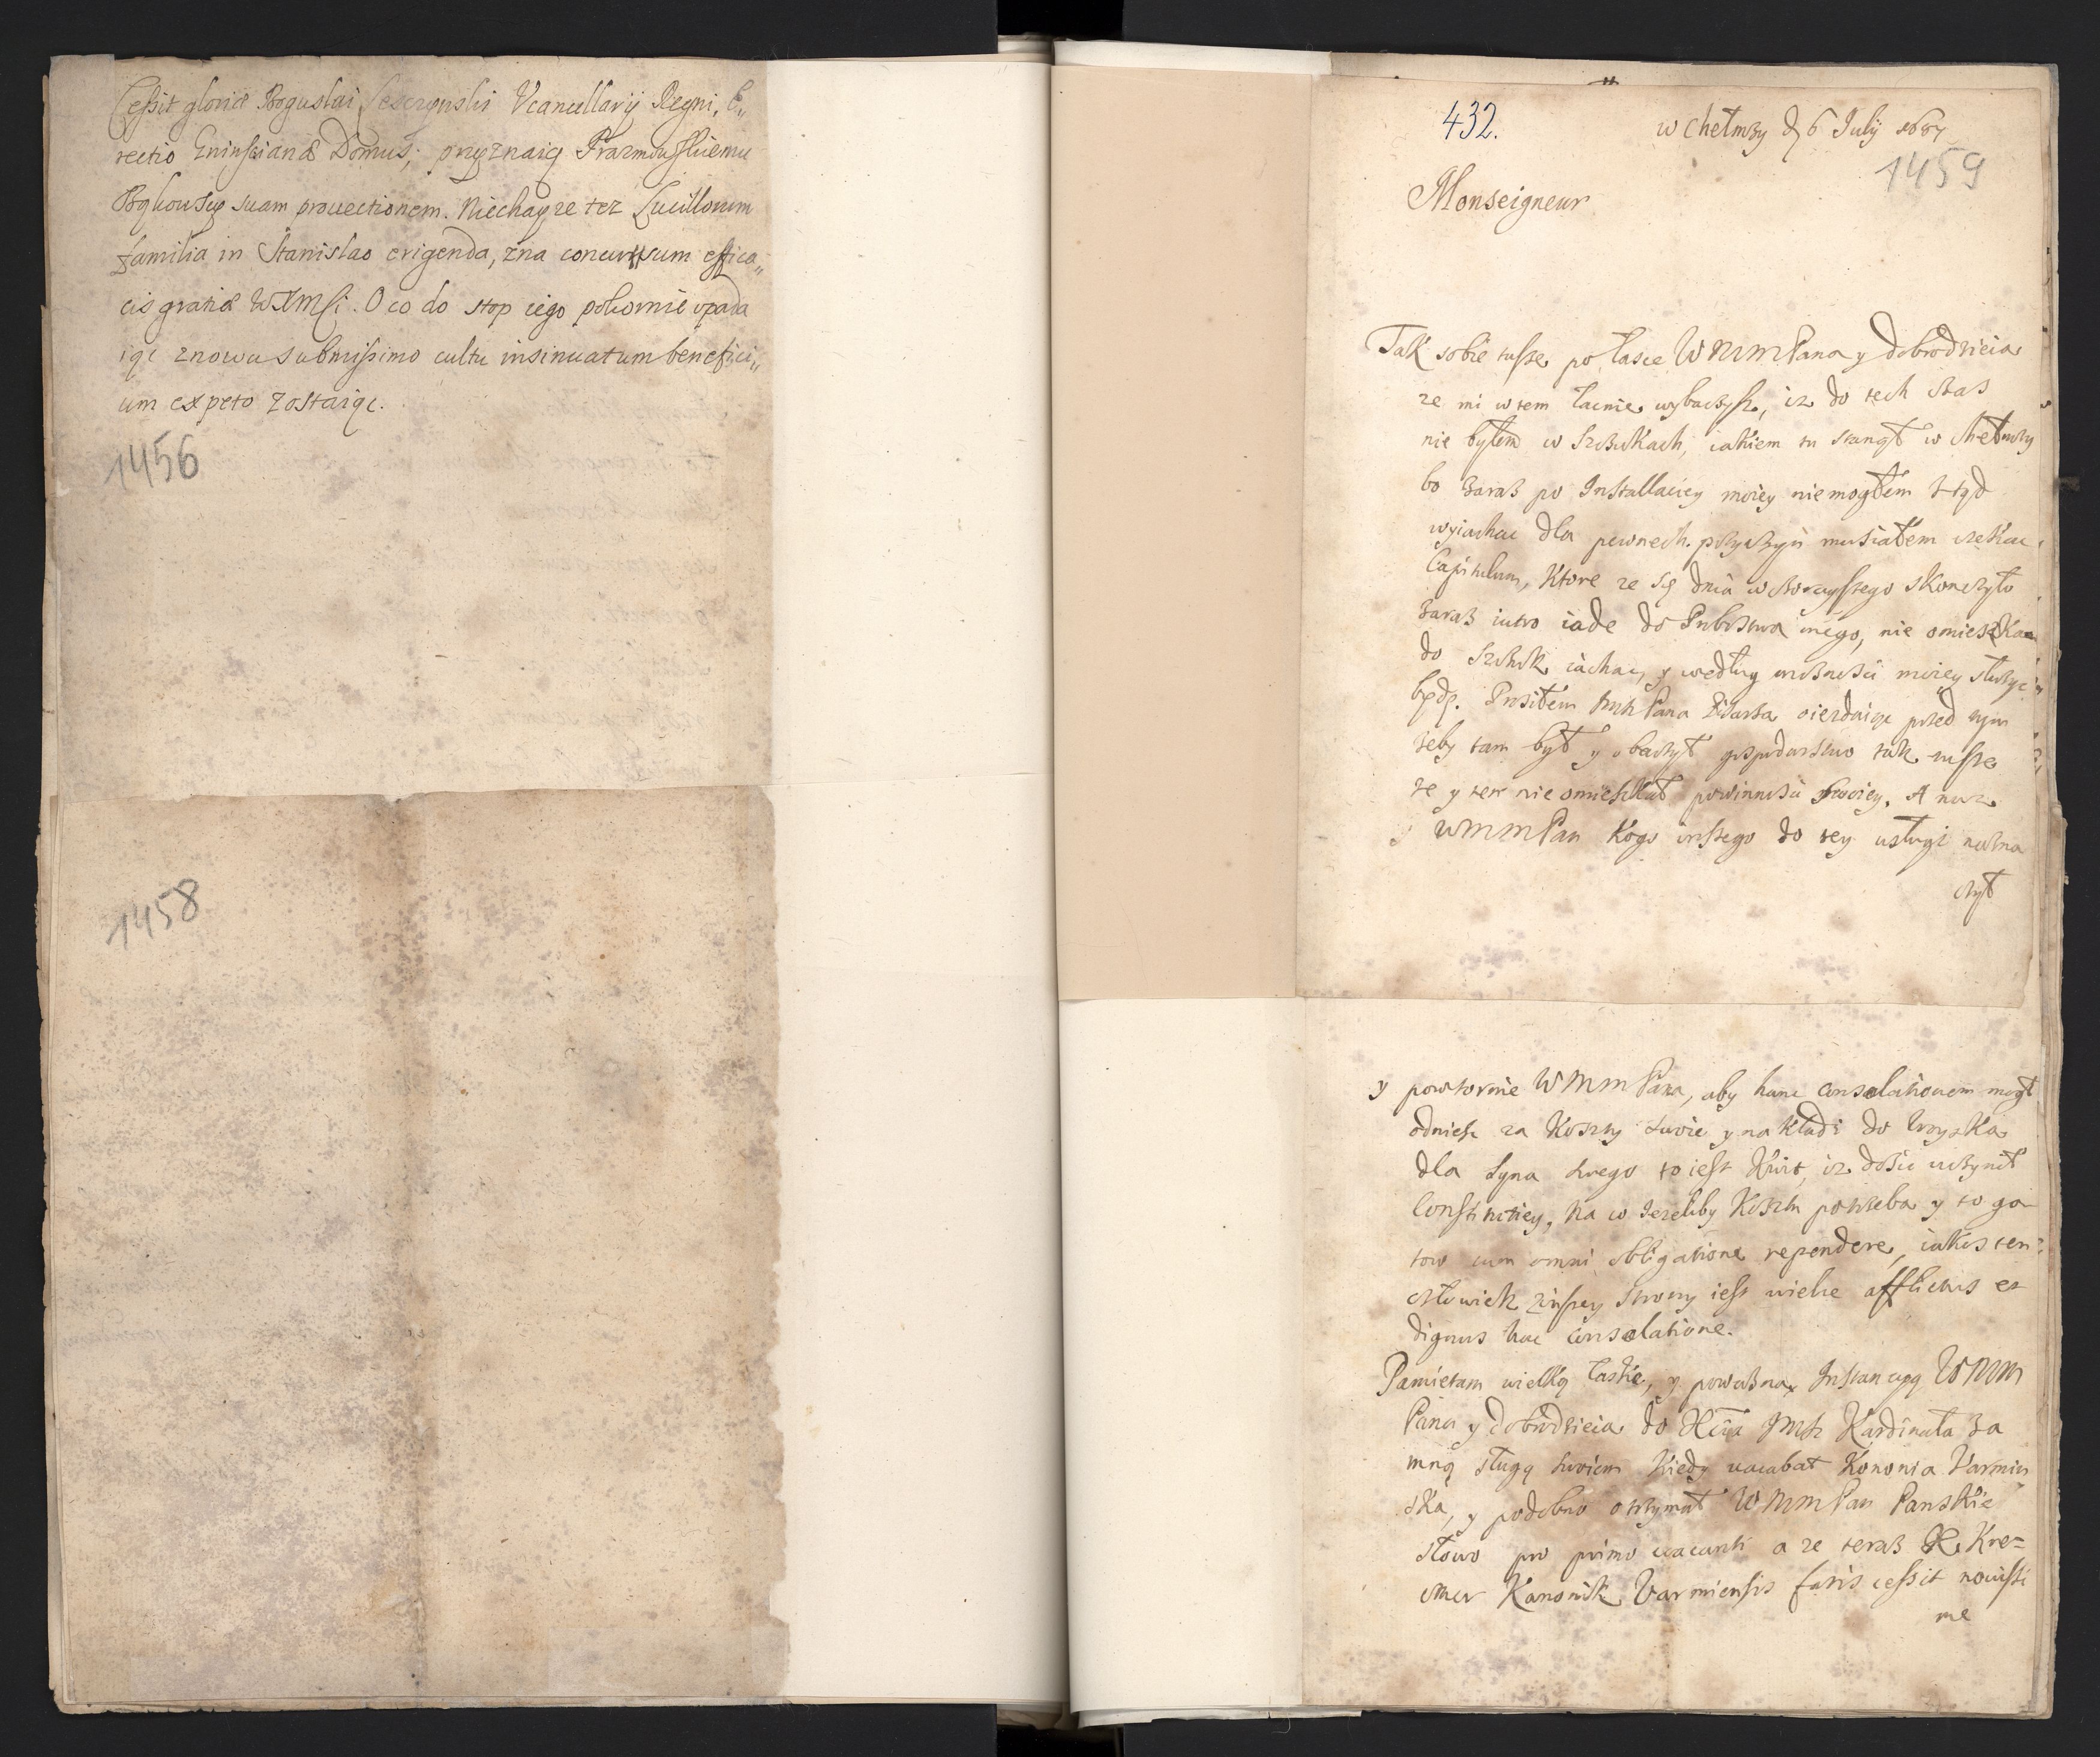 Cessit gloriæ Boguslai Lesczynski Vcancellarij Regni, E„
rectio Gninsciana Domus; przyznaią Prazmowskiemu
Bąkowscy suam prouectionem. Niechayze tez Lucillorum
familia in Stanislao erigenda, zna concursum effica„
cis gratiæ WXMCi. O co do stop iego pokornie vpada
iąc znowu submissimo cultu insinuatum benefici„
um expeto zostaiąc.
1456
1458
432.
w Chełmzy d 6 July
1459
Monseigneur
Tak sobie tusze po łasce WMMPana y dobrodzieia
ze mi w tem łacnie wybaczysz, iz do tech czas
nie byłem w Szczukach, iakiem tu stanął w Chełmzy
bo zaraz po Installaciey moiey niemogłem ztąd
wyiachac dla pewnech przyczyn musiałem czekac
Capitulum, Ktore ze się dnia wczorayszego skonczyło
zaraz iutro iade do Probostwa mego, nie omieszkam
do Szczuk iachac, y według moznosci moiey służyc
będę. Prosiłem Pana oiezdzaiąc przed tym
zeby tam był y obaczył gospodarstwo tak tusze
ze y ten nie omieszkał powinnosci swoiey. A nuz
y WMMPan Kogo inszego do tey usługi nazna
czył
y powtornie WMMPana, aby hanc consolationem mogł
odniesc za Koszty swoie y nakłady do
dla Syna swego to iest iz dosic uczynił
Constitutiey, Na co Jezeliby Kosztu potrzeba y to go
tow cum omni obligatione rependere, iakos ten
człowiek zinszey strony iest wielce afflictus et
dignus hac consolatione.
Pamietam wielką łaskie, y powazną Instancyą WMM
Pana y dobrodzieia do Xcia Jmsci Kardinała za
mną sługą swoiem Kiedy vacabat Kanonia Varmin
ska, y podobno otrzymał WMMPan Panskie
słowo pro primo vacanti a ze teraz X Kre=
cmer Kanonik Varmiensis fatis cessit nouissi
me